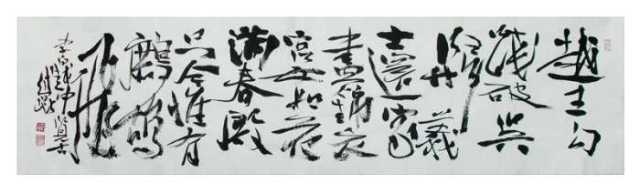 越王勾
踐破吳
歸義
士還家
盡錦衣
宮女如花
滿春殿
只今惟有
鷓鴣
飛
李白詩越中覽古